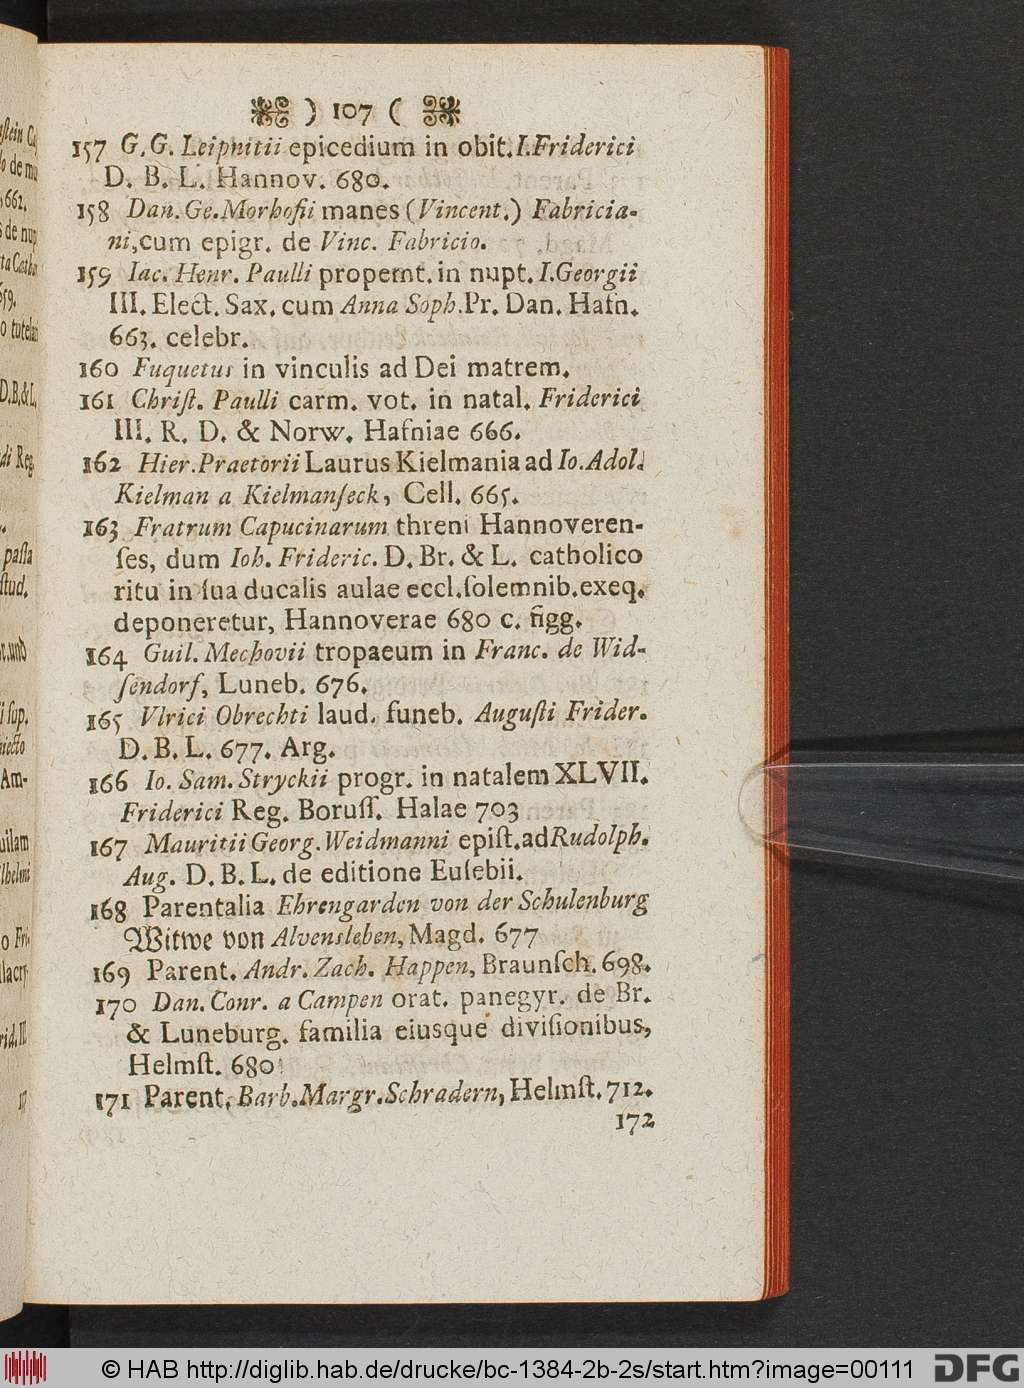 ) 107 (
157 G. G. Leipnitii epicedium in obit. I. Friderici
D. B. L. Hannov. 680.
158 Dan. Ge. Morhofii manes (Vincent.) Fabricia-
ni, cum epigr. de Vinc. Fabricio.
159 Iac. Henr. Paulli propemt. in nupt. I. Georgii
III. Elect. Sax. cum Anna Soph. Pr. Dan. Hafn.
663. celebr.
160 Fuquetus in vinculis ad Dei matrem.
161 Chriſt. Paulli carm. vot. in natal. Friderici
III. R. D. & Norw. Hafniae 666.
162 Hier. Praetorii Laurus Kielmania ad Io. Adol.
Kielman a Kielmanſeck, Cell. 665.
163 Fratrum Capucinarum threni Hannoveren-
ſes, dum Ioh. Frideric. D. Br. & L. catholico
ritu in ſua ducalis aulae eccl. ſolemnib. exeq.
deponeretur, Hannoverae 680 c. figg.
164 Guil. Mechovii tropaeum in Franc. de Wid-
ſendorf, Luneb. 676.
165 Vlrici Obrechti laud. funeb. Auguſti Frider.
D. B. L. 677. Arg.
166 Io. Sam. Stryckii progr. in natalem XLVII.
Friderici Reg. Boruſſ. Halae 703
167 Mauritii Georg. Weidmanni epiſt. ad Rudolph.
Aug. D. B. L. de editione Euſebii.
168 Parentalia Ehrengarden von der Schulenburg
Witwe von Alvensleben, Magd. 677
169 Parent. Andr. Zach. Happen, Braunſch. 698.
170 Dan. Conr. a Campen orat. panegyr. de Br.
& Luneburg. familia eiusque diviſionibus,
Helmſt. 680
171 Parent. Barb. Margr. Schradern, Helmſt. 712.
172
© HAB http://diglib.hab.de/drucke/bc-1384-2b-2s/start.htm?image=00111
DFG